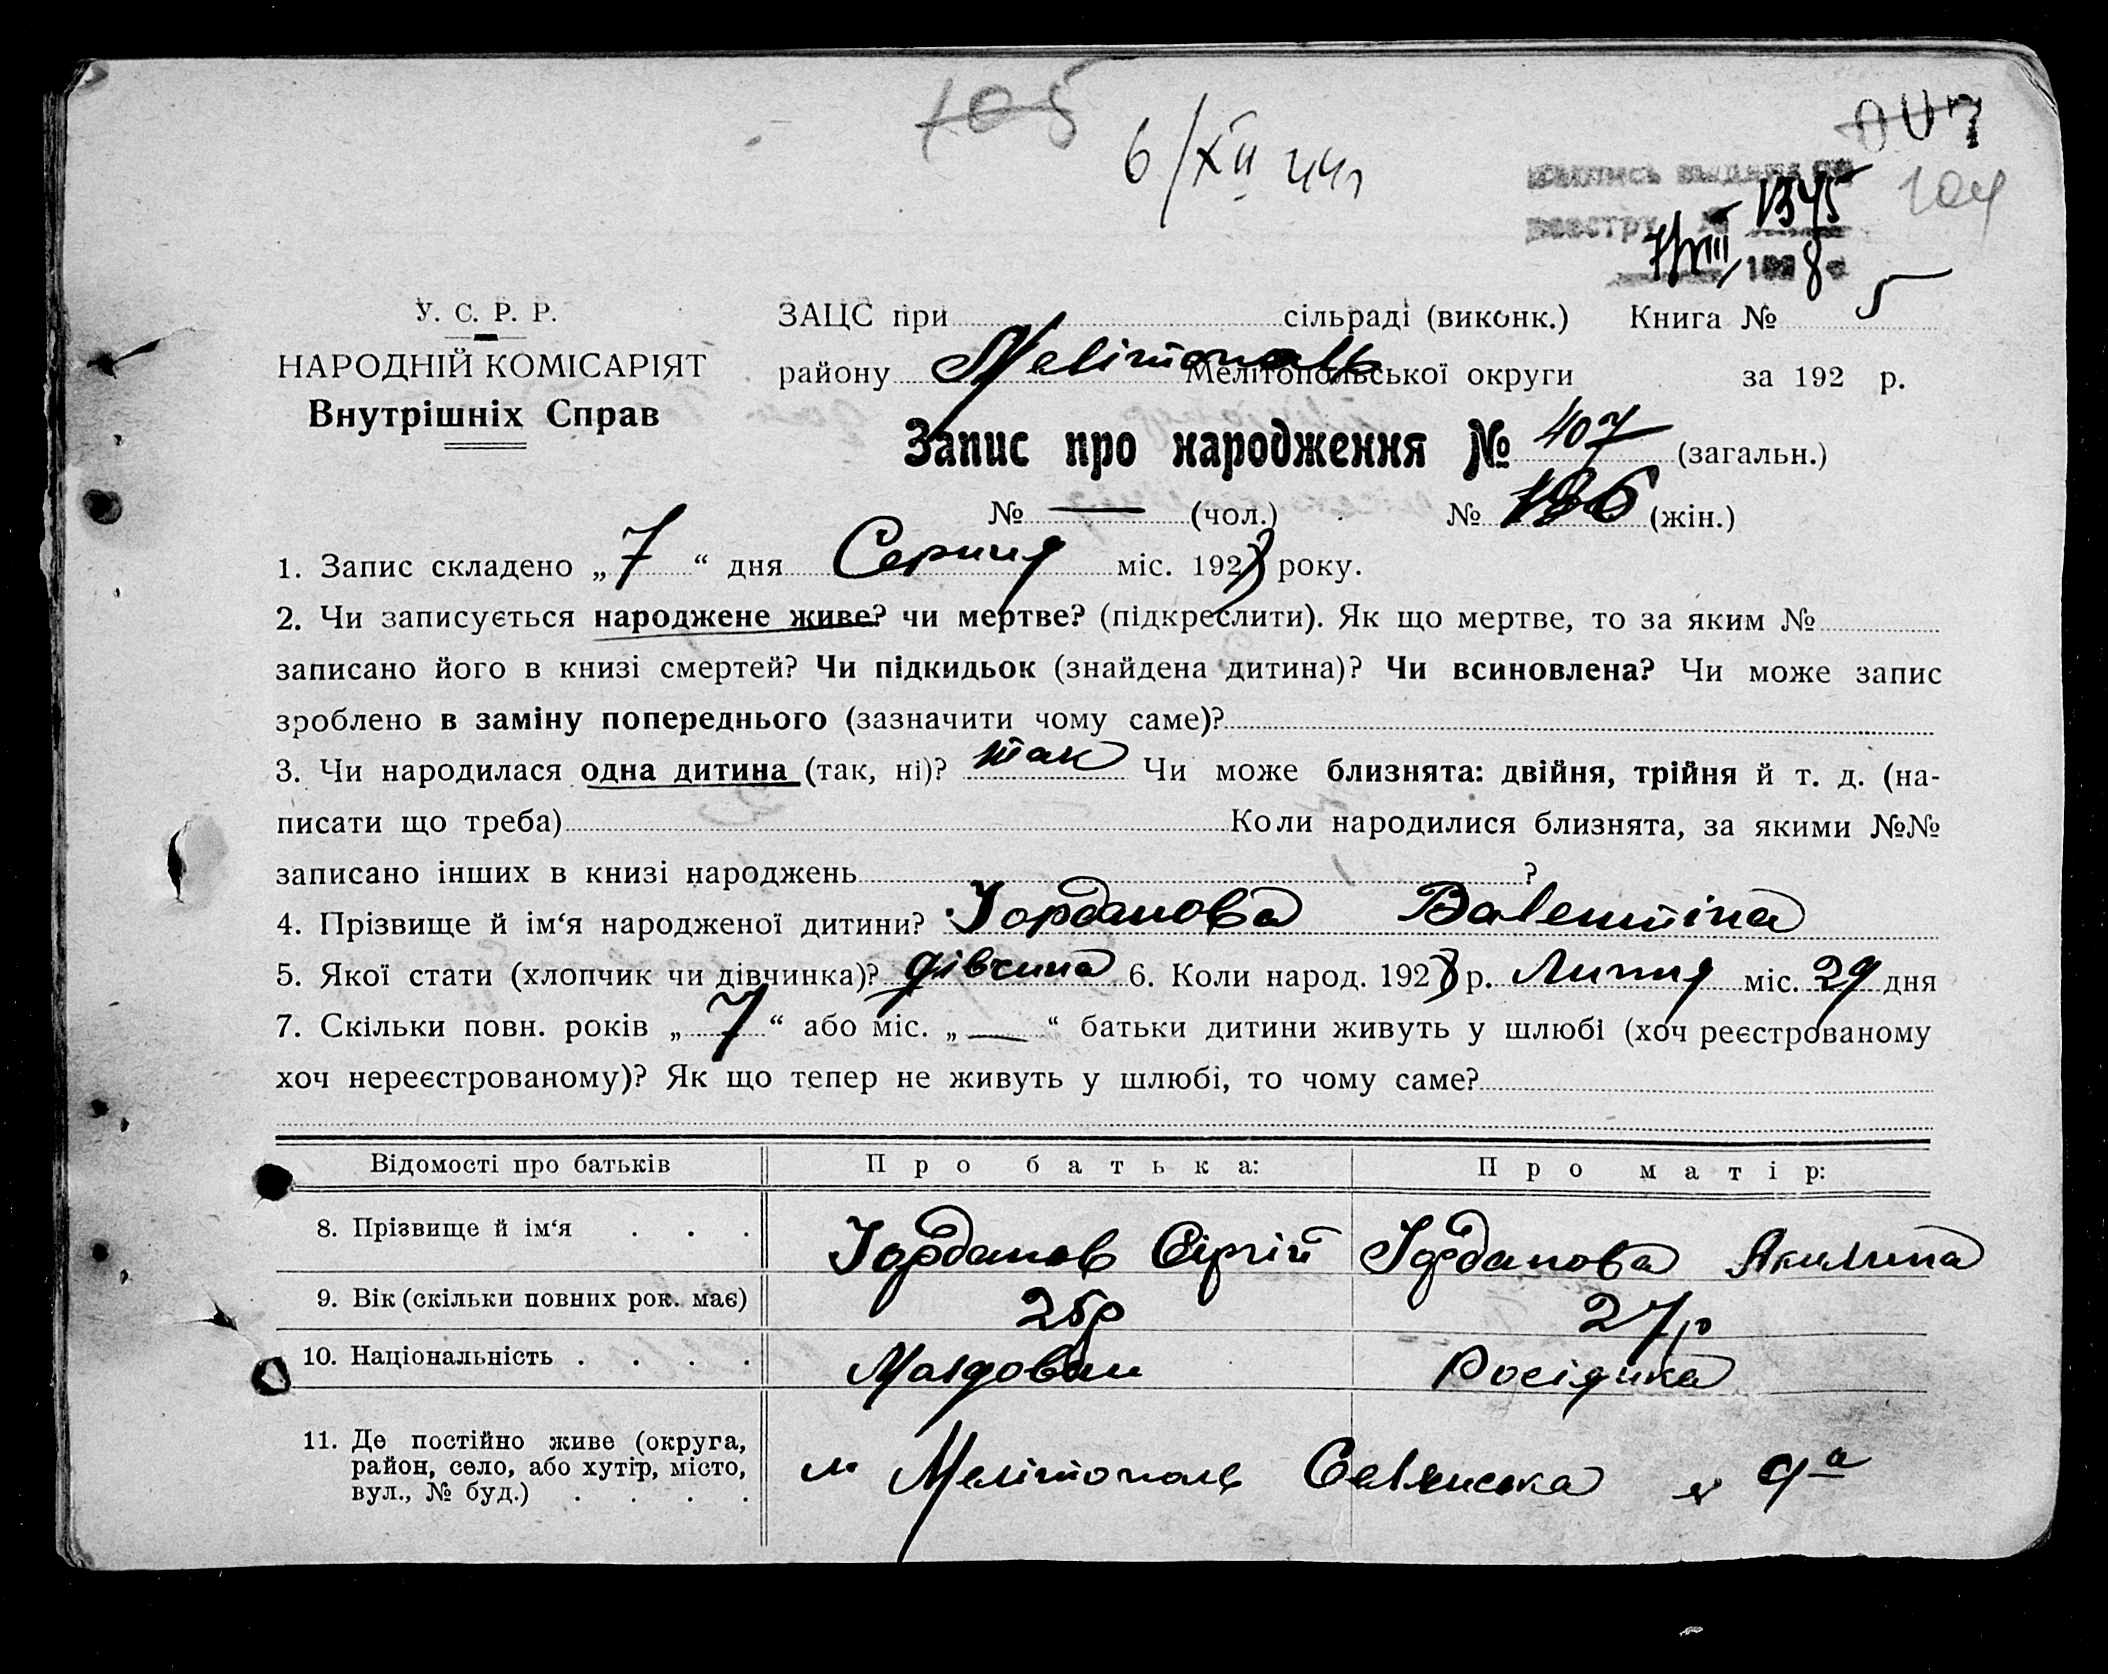 105
6/XII 44г
007
104
Выпись выдана по
реестру № 1345
7/VIII 1928
У. С. Р. Р.
НАРОДНІЙ КОМІСАРІЯТ
Внутрішніх Справ
ЗАЦС при сільраді (виконк.) Книга № 5
району Мелітополь Мелітопольської округи за 192 р.
Запис про народження № 407 (загальн.)
№ — (чол.) № 196 (жін.)
1. Запис складено „ 7 “ дня Серпня міс. 1928 року.
2. Чи записується народжене живе? чи мертве? (підкреслити). Як що мертве, то за яким №
записано його в книзі смертей? Чи підкидьок (знайдена дитина)? Чи всиновлена? Чи може запис
зроблено в заміну попереднього (зазначити чому саме)?
3. Чи народилася одна дитина (так, ні)? так Чи може близнята: двійня, трійня й т. д. (на-
писати що треба) Коли народилися близнята, за якими №№
записано інших в книзі народжень ?
4. Прізвище й ім‘я народженої дитини? Іорданова Валентіна
5. Якої стати (хлопчик чи дівчинка)? дівчина 6. Коли народ. 1928 р. Липня міс. 29 дня
7. Скільки повн. років „ 7 “ або міс. „ — “ батьки дитини живуть у шлюбі (хоч реєстрованому
хоч нереєстрованому)? Як що тепер не живуть у шлюбі, то чому саме?
Відомості про батьків Про батька: Про матір:
8. Прізвище й ім‘я . . . Іорданов Сіргій Іорданова Акилина
9. Вік (скільки повних рок. має) 25р 27р
10. Національність . . . . Молдован Росіянка
11. Де постійно живе (округа,
район, село, або хутір, місто,
вул., № буд.) . . . . м Мелітополь Селянська № 9а